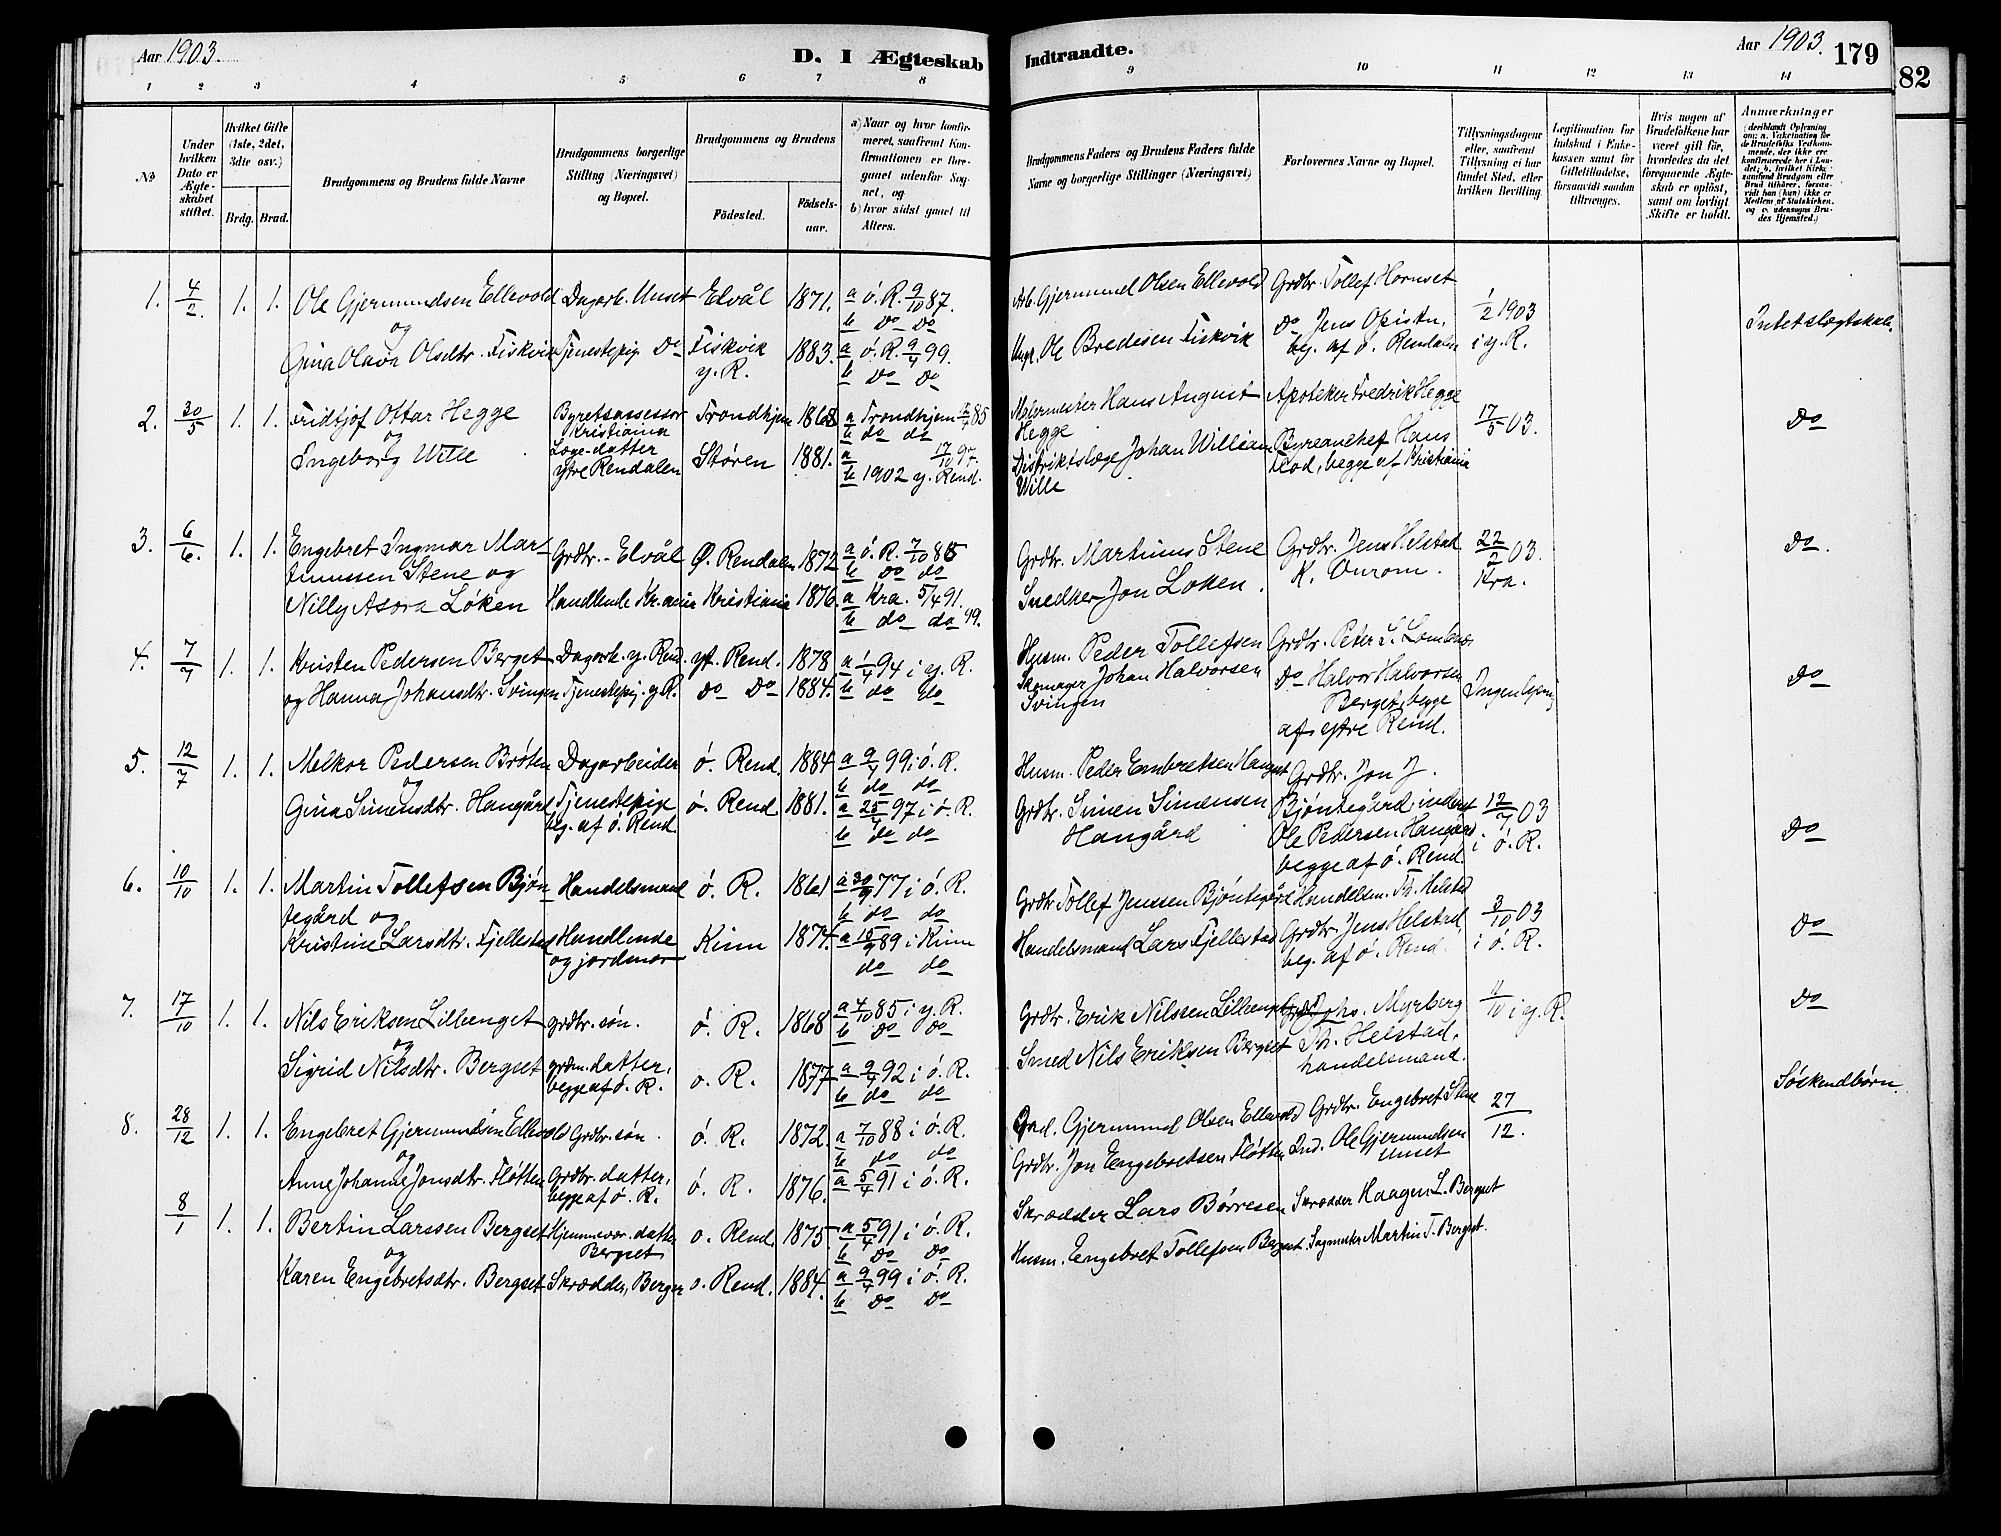 Aar 1903.
D. I Ægteskab
Indtraadte.
Aar 1903.
179
82
1 2 3 4 5 6 7 8
9 10 11 12 13 14
No
Under hvilken Dato er Ægteskabet stiftet.
Hvilket Gifte (1ste, 2det, 3die osv.)
Brdg. Brud.
Brudgommens og Brudens fulde Navne
Brudgommens borgerlige Stilling (Næringsvei) og Bopæl.
Brudgommens og Brudens
Fødested.
Fødselsaar.
a) Naar og hvor konfirmeret, saafremt Konfirmationen er foregaaet udenfor Sognet, og
b) hvor sidst gaaet til Alters.
Brudgommens Faders og Brudens Faders fulde Navne og borgerlige Stillinger (Næringsvei)
Forlovernes Navne og Bopæl.
Tillysningsdagene eller, saafremt Tillysning ei har fundet Sted, efter hvilken Bevilling.
Legitimation for Indskud i Enkekassen samt for Giftetilladelse, forsaavidt saadan tiltrænges.
Hvis nogen af Brudefolkene har været gift før, hvorledes da det foregaaende Ægteskab er opløst, samt om lovligt Skifte er holdt.
Anmærkninger
(deriblandt Oplysning om: a. Vakcination for de Brudefolks Vedkommende, der ikke ere konfirmerede her i Landet; b. hvilket Kirkesamfund Brudgom eller Brud tilhører, forsaavidt han (hun) ikke er Medlem af Statskirken, og c. udensogns Brudes Hjemsted.)
1. 4/2. 1. 1. Ole Gjermundsen Ellevold Dagarb. Unset Elvål 1871. a ö. R. 9/10 87.
og b Do Do
Gina Olava Olsdtr. Fiskvik Tjenestepig. Do Fiskvik 1883. a ö. R. 9/4 99.
y. R. b Do Do
Arb. Gjermund Olsen Ellevold Grdbr. Tollef Hornset 1/2 1903
Do Jens
Ole Bredesen Fiskvik beg. af ö. Rendalen i y. R.
2. 30/5 1. 1. Fridtjof Ottar Hegge Byretsassessor Kristiania Trondhjem 1868 a Trondhjem 85
og b do do
Ingeborg Wille Læge-datter ytre Rendalen Støren 1881. a 17/10 97.
b 1902 y. Rend.
Malermester Hans August Hegge Apoteker Fredrik Hegge 17/5 03. Do
Distriktslæge Johan William Wille Byreauchef Hans begge af Kristiania
3. 6/6. 1. 1. Engebret Ingmar Martinussen Stene og Grdbr. - Elvål Ø. Rendalen 1872 a ö. R. 7/10 88
b Do do
Nilly Asora Løken Handlende Kr.ania Kristiania 1876. a Kra. 5/4 91.
b do do 99.
Grdbr. Martinus Stene Grdbr. Jens Helstad 22/2 03. Do.
Snedker Jon Løken. K. Kra.
4. 7/7 1. 1. Kristen Pedersen Berget Dagarb. y. Rend. yt. Rend. 1878 a 94 i y. R.
og Hanna Johansdtr. Svingen Tjenestepig. y. R. Do Do 1884. b do do
Husm. Peder Tollefsen Grdbr. Peter S.
Skomager Johan Halvorsen Svingen Do Halvor Halvorsen Berget, begge af ytre Rend. Do
5. 12/7 1. 1. Melkor Pedersen Bröten Dagarbeider ö. Rend. 1884 a 9/4 99 i ö. R.
og b do do
Gina Simensdtr. Hangård Tjenestepige beg. af ö. Rend. ö. Rend. 1881. a 25/4 97 i ö. R.
b do do
Husm. Peder Embretsen Grdbr. Jon J. Bjöntegård, inderst 12/7 03
Grdbr. Simen Simensen Hangård Ole Pedersen Hangård i ö. R. Do
begge af ö. Rend.
6. 10/10 1. 1. Martin Tollefsen Bjöntegård og Handelsmand ö. R. 1861 a 30/9 77 i ö. R.
b do do
Kristine Larsdtr. Fjellestad Handlende og jordmor Kinn 1874. a 15/9 89 i Kinn
do do
Grdbr Tollef Jenssen Bjöntegård Handelsm. Th. Helstad 3/10 03
Handelsmand Lars Fjellestad Grdbr. Jens Helstad, beg. af ö. Rend. i ö. R. Do
7. 17/10 1. 1. Nils Eriksen Lillenget grdbr. søn. ö. R. 1868 a 4/10 85 i y. R.
og b Do Do
Sigrid Nilsdtr. Bergset datter, begge af ö. R. o. R. 1877 a 9/4 92 i ö. R.
b Do do
Grdbr. Erik Nilssen Lillenget Johs. Myrberg 11/10 i y. R. Do
Smed Nils Eriksen Bergset Th. Helstad, handelsmand.
Söskendbörn
8. 28/12 1. 1. Engebret Gjermundsen Ellevold Grdbr. søn. ö. R. 1872. a 7/10 88 i ö. R.
og b do do
Anne Johanne Jonsdtr. Fløtten Grdbr. datter, begge af ö. R. ö. R. 1876. a 5/4 91 i ö. R.
Gjermund Olsen Ellevold Grdbr. Engebret Stene 27/12.
Grdbr. Jon Engebretsen Fløtten Ind. Ole Gjermundsen Unset
8/1 1. 1. Bertin Larssen Bergset Hjemmevær. datter Bergset o. Rend. 1875 a 5/4 91 i ö. R.
og b Do Do
Karen Engebretsdtr. Bergset Skrædder, o. Rend. 1884. a 9/4 99 i ö. R.
b Do Do
Skrædder Lars Börresen Skrædder Haagen L. Bergset
Husm. Engebret Tollefsen Bergset. Martin T. Bergset.